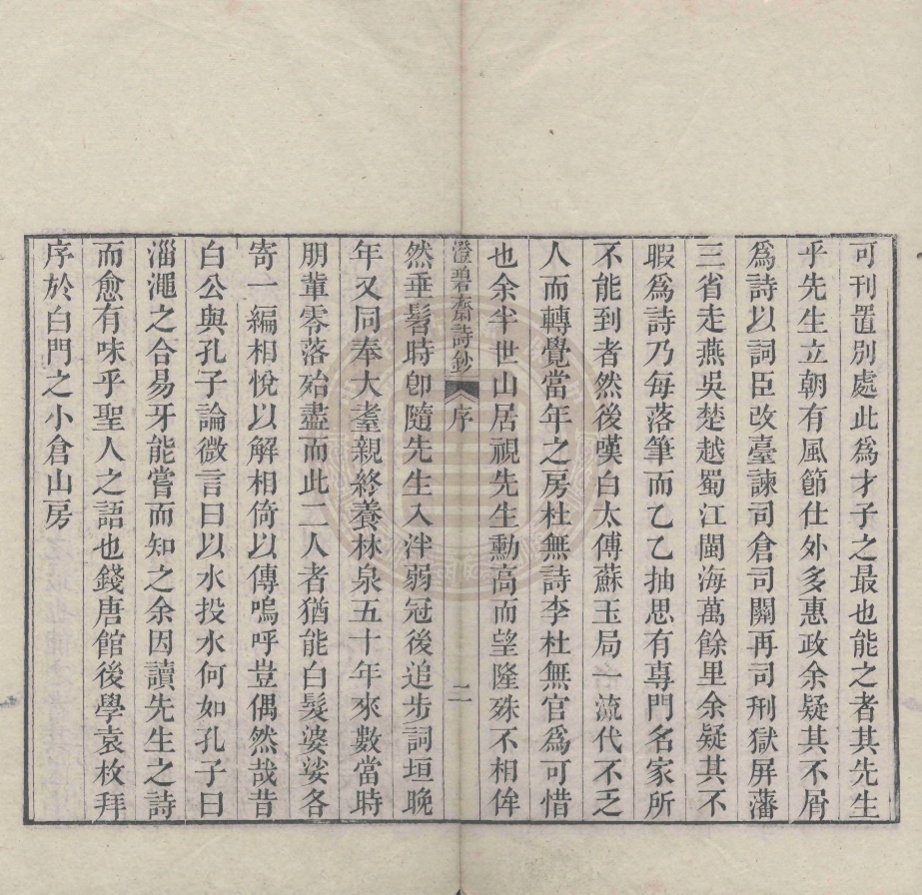 可刊置別處此爲才子之最也能之者其先生
乎先生立朝有風節仕外多惠政余疑其不屑
爲詩以詞臣改臺諫司倉司關再司刑獄屏藩
三省走燕吳楚越蜀江閩海萬餘里余疑其不
暇爲詩乃每落筆而乙乙抽思有專門名家所
不能到者然後嘆白太傅蘇玉局一流代不乏
人而轉覺當年之房杜無詩李杜無官爲可惜
也余半世山居視先生勳高而望隆殊不相侔
澄碧齋詩鈔 序 二
然垂髫時卽隨先生入泮弱冠後追步詞垣晚
年又同奉大耋親終養林泉五十年來數當時
朋輩零落殆盡而此二人者猶能白髮婆娑各
寄一編相悅以解相倚以傳嗚呼豈偶然哉昔
白公與孔子論微言曰以水投水何如孔子曰
淄澠之合易牙能嘗而知之余因讀先生之詩
而愈有味乎聖人之語也錢唐館後學袁枚拜
序於白門之小倉山房